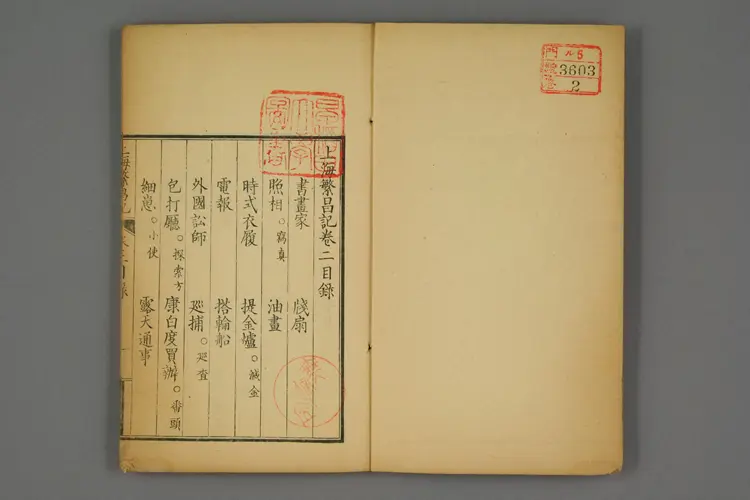 上海繁昌記卷二目錄
書畫家 牋扇
照相。寫真 油畫
時式衣履 提金爐。滅金
電報 搭輪船
外國訟師 巡捕。巡查
包打廳。探索方 康白度買辦。番頭
細崽。小使 露天通事
上海繁昌記 目錄
門 ル5
號 3603
2